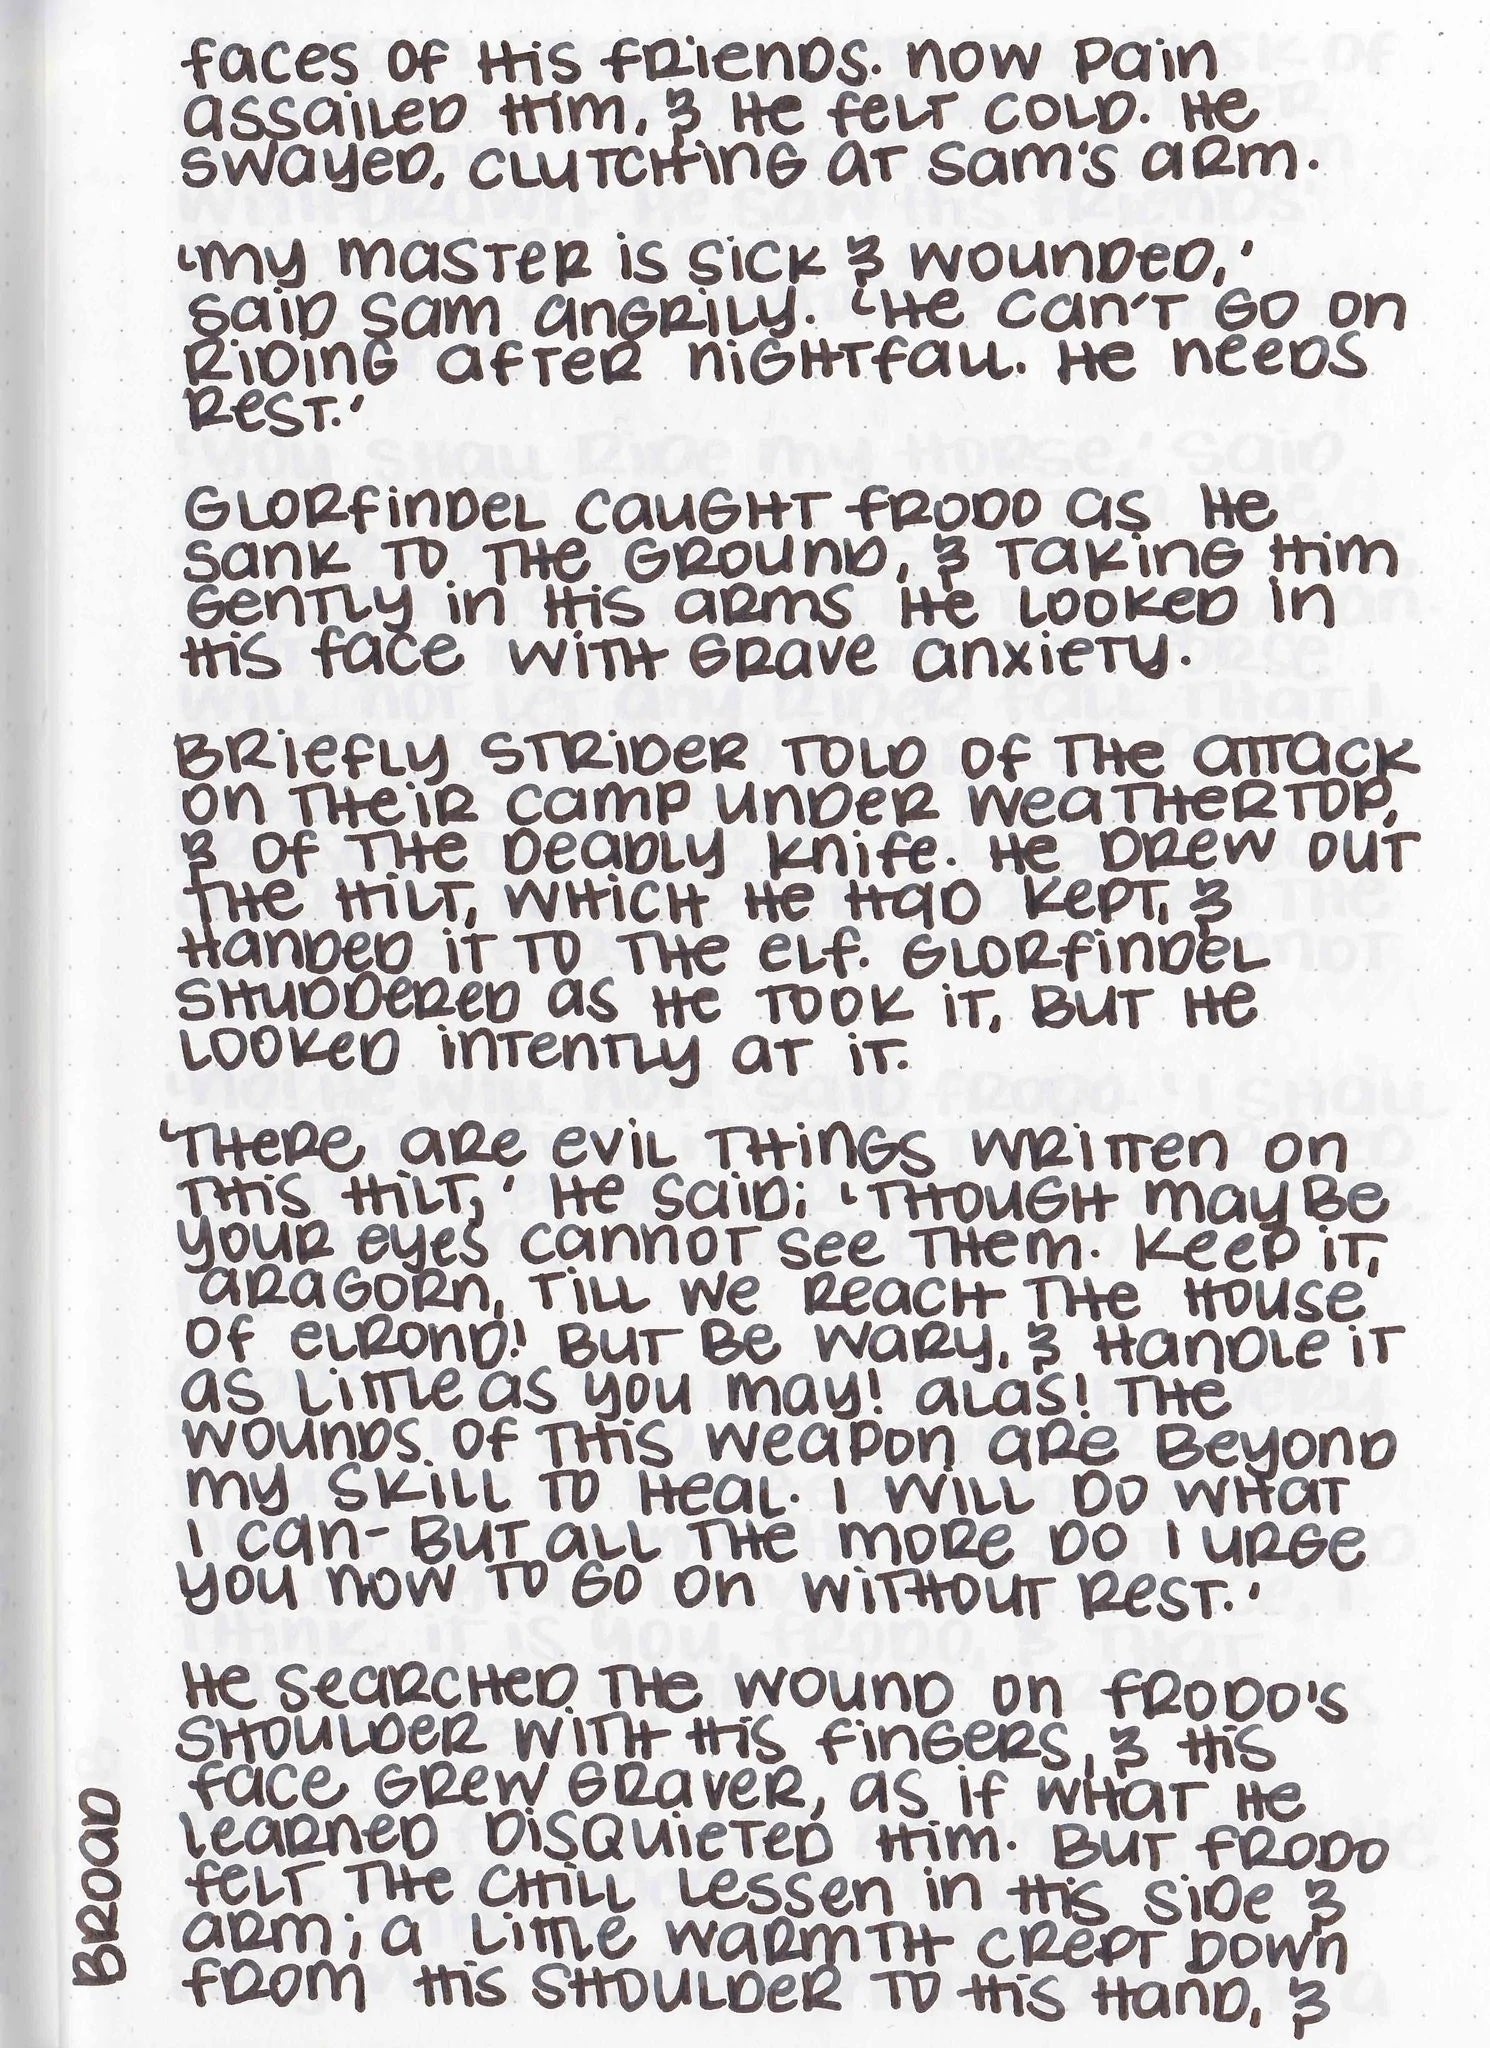 faces of his friends. now pain
assailed him, & he felt cold. He
swayed, clutching at Sam's arm.
'my master is sick & wounded,'
said Sam angrily. 'He can't go on
riding after nightfall. He needs
rest.'
Glorfindel caught Frodo as he
sank to the ground, & taking him
gently in his arms he looked in
his face with grave anxiety.
Briefly Strider told of the attack
on their camp under Weathertop,
& of the deadly knife. He drew out
the hilt, which he had kept, &
handed it to the elf. Glorfindel
shuddered as he took it, but he
looked intently at it.
'There are evil things written on
this hilt,' he said; 'though maybe
your eyes cannot see them. Keep it,
Aragorn, till we reach the house
of Elrond! But be wary, & handle it
as little as you may! Alas! The
wounds of this weapon are beyond
my skill to heal. I will do what
I can - but all the more do I urge
you now to go on without rest.'
He searched the wound on Frodo's
shoulder with his fingers, & his
face grew graver, as if what he
learned disquieted him. But Frodo
felt the chill lessen in his side &
arm; a little warmth crept down
from his shoulder to his hand, &
Broad